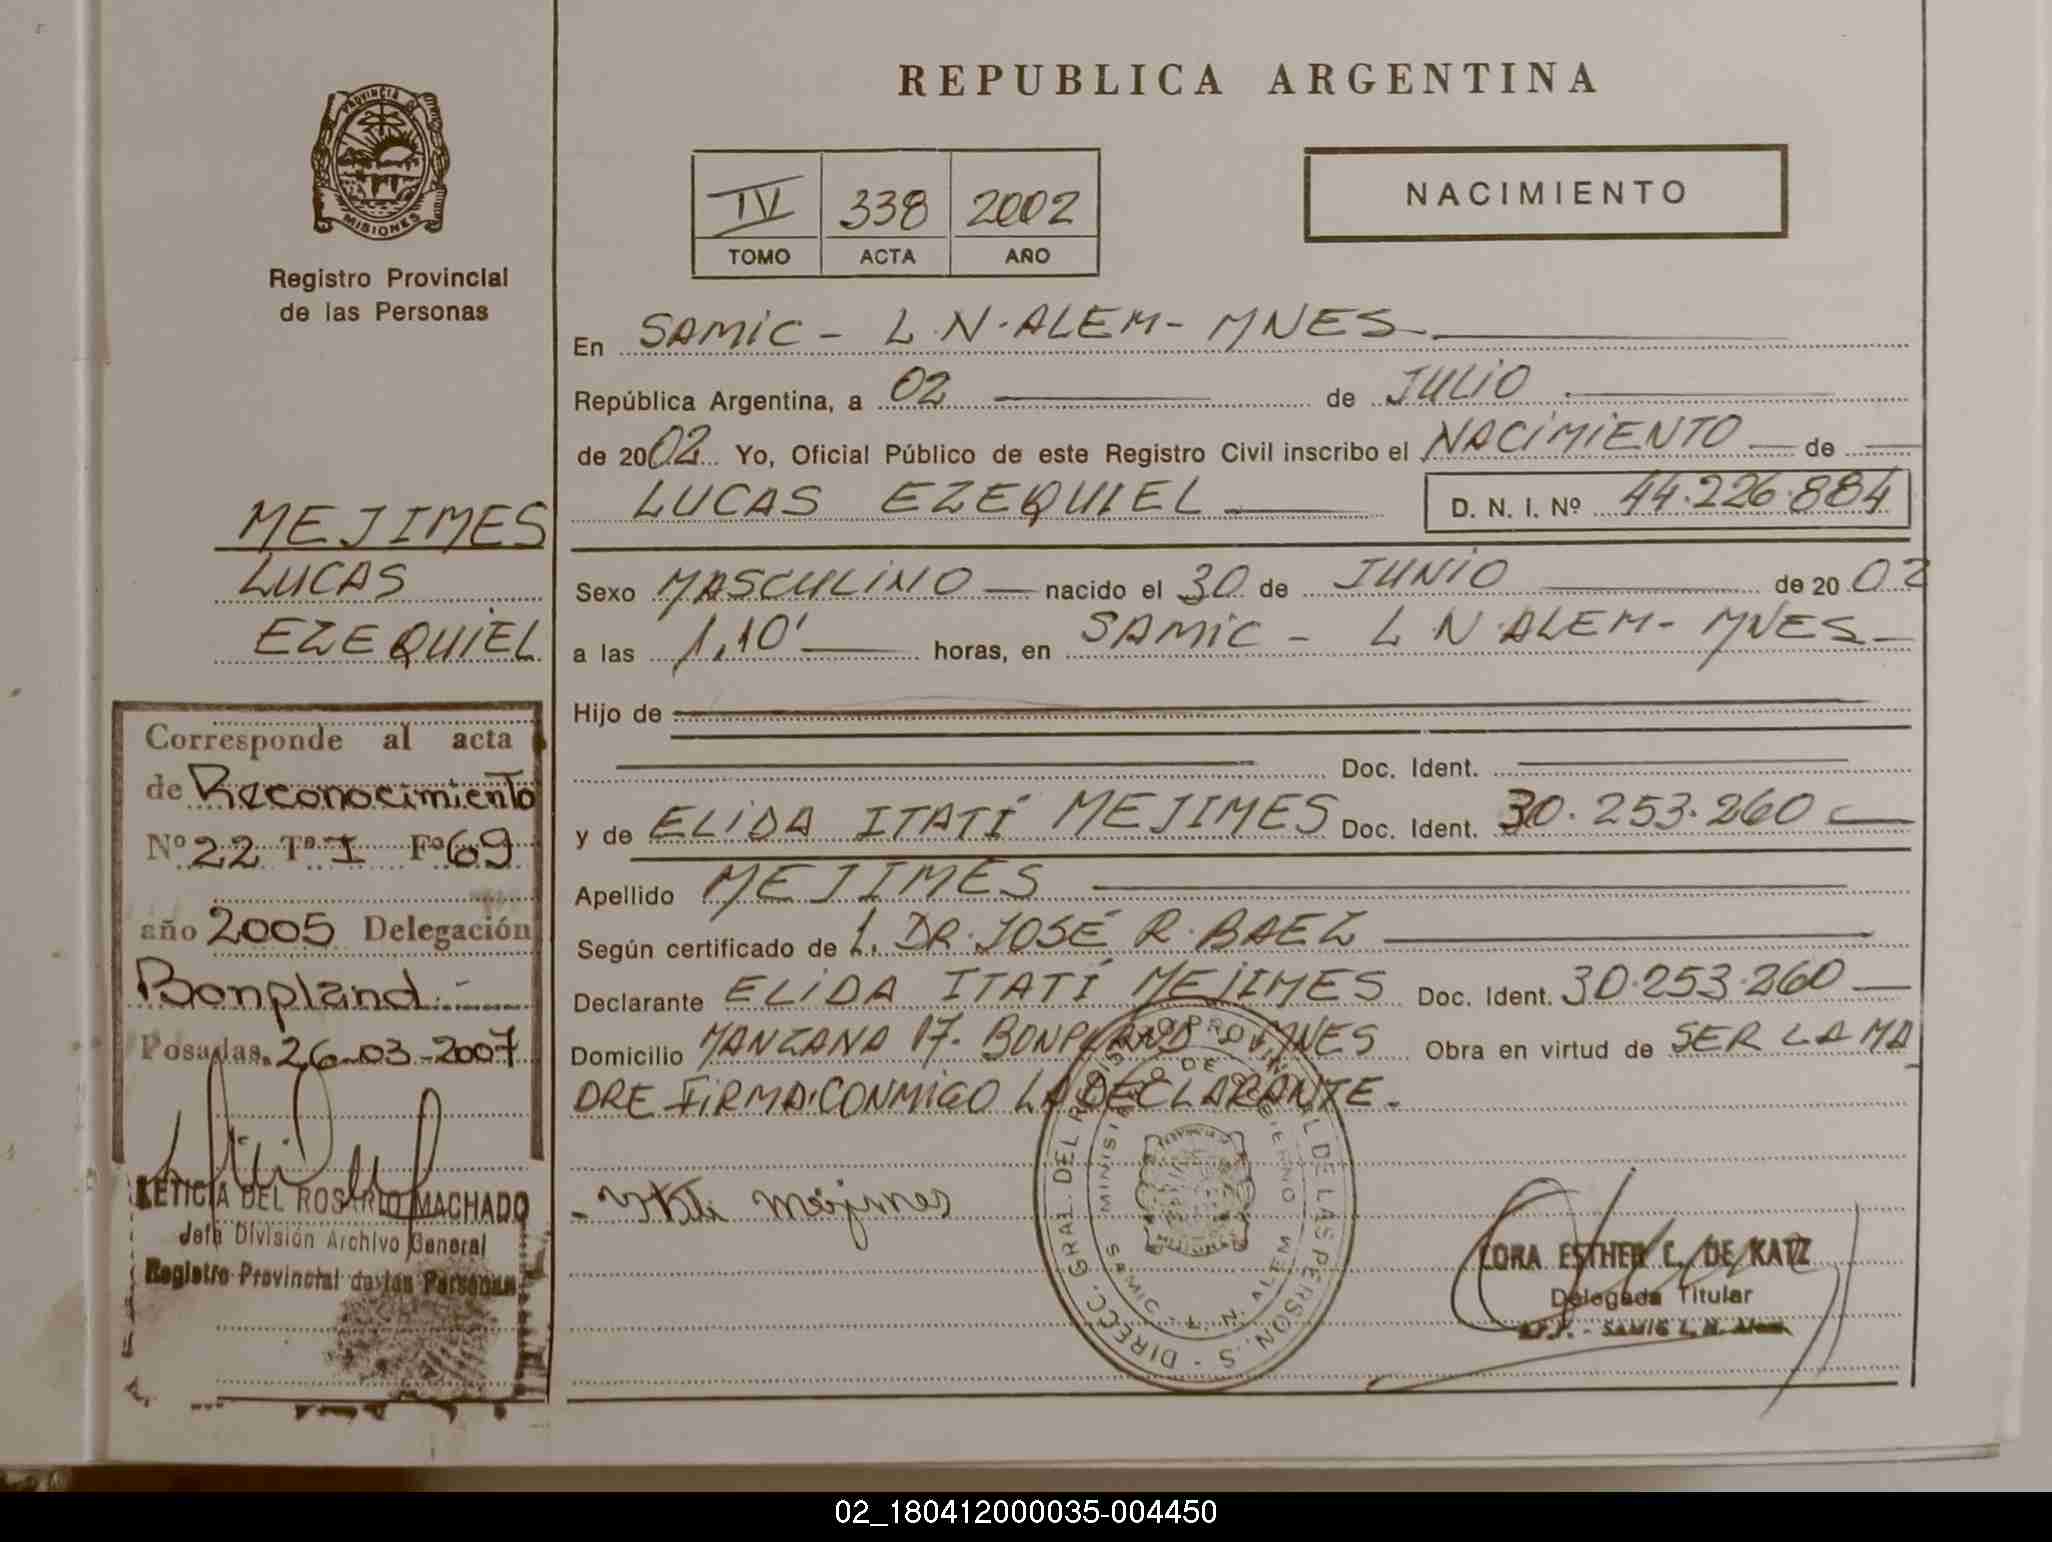 REPUBLICA ARGENTINA
PROVINCIA
MISIONES
Registro Provincial
de las Personas
IV 338 2002
TOMO ACTA AÑO
NACIMIENTO
En SAMIC - L.N.ALEM - MNES
República Argentina, a 02 de JULIO
de 2002 Yo, Oficial Público de este Registro Civil inscribo el NACIMIENTO de
LUCAS EZEQUIEL D. N. I. Nº 44.226.884
MEJIMES
LUCAS
EZEQUIEL
Sexo MASCULINO nacido el 30 de JUNIO de 2002
a las 1,10' horas, en SAMIC - L N ALEM - MNES
Hijo de
Doc. Ident.
y de ELIDA ITATÍ MEJIMES Doc. Ident. 30.253.260
Apellido MEJIMES
Según certificado de L. DR. JOSÉ R. BAEZ
Declarante ELIDA ITATÍ MEJIMES Doc. Ident. 30.253.260
Domicilio MANZANA 17. BONPLAND MNES Obra en virtud de SER LA MA
DRE FIRMA CONMIGO LA DECLARANTE.
Corresponde al acta
de Reconocimiento
Nº 22 Tº I Fº 69
año 2005 Delegación
Bonpland
Posadas, 26-03-2007
LETICIA DEL ROSARIO MACHADO
Jefa División Archivo General
Registro Provincial de las Personas
mejimes
DIRECC. GRAL. DEL REGISTRO PROVINCIAL DE LAS PERSONAS
MINISTERIO DE GOBIERNO
SAMIC - L. N. ALEM
CORA ESTHER C. DE KATZ
Delegada Titular
SAMIC L. N. Alem
02_180412000035-004450